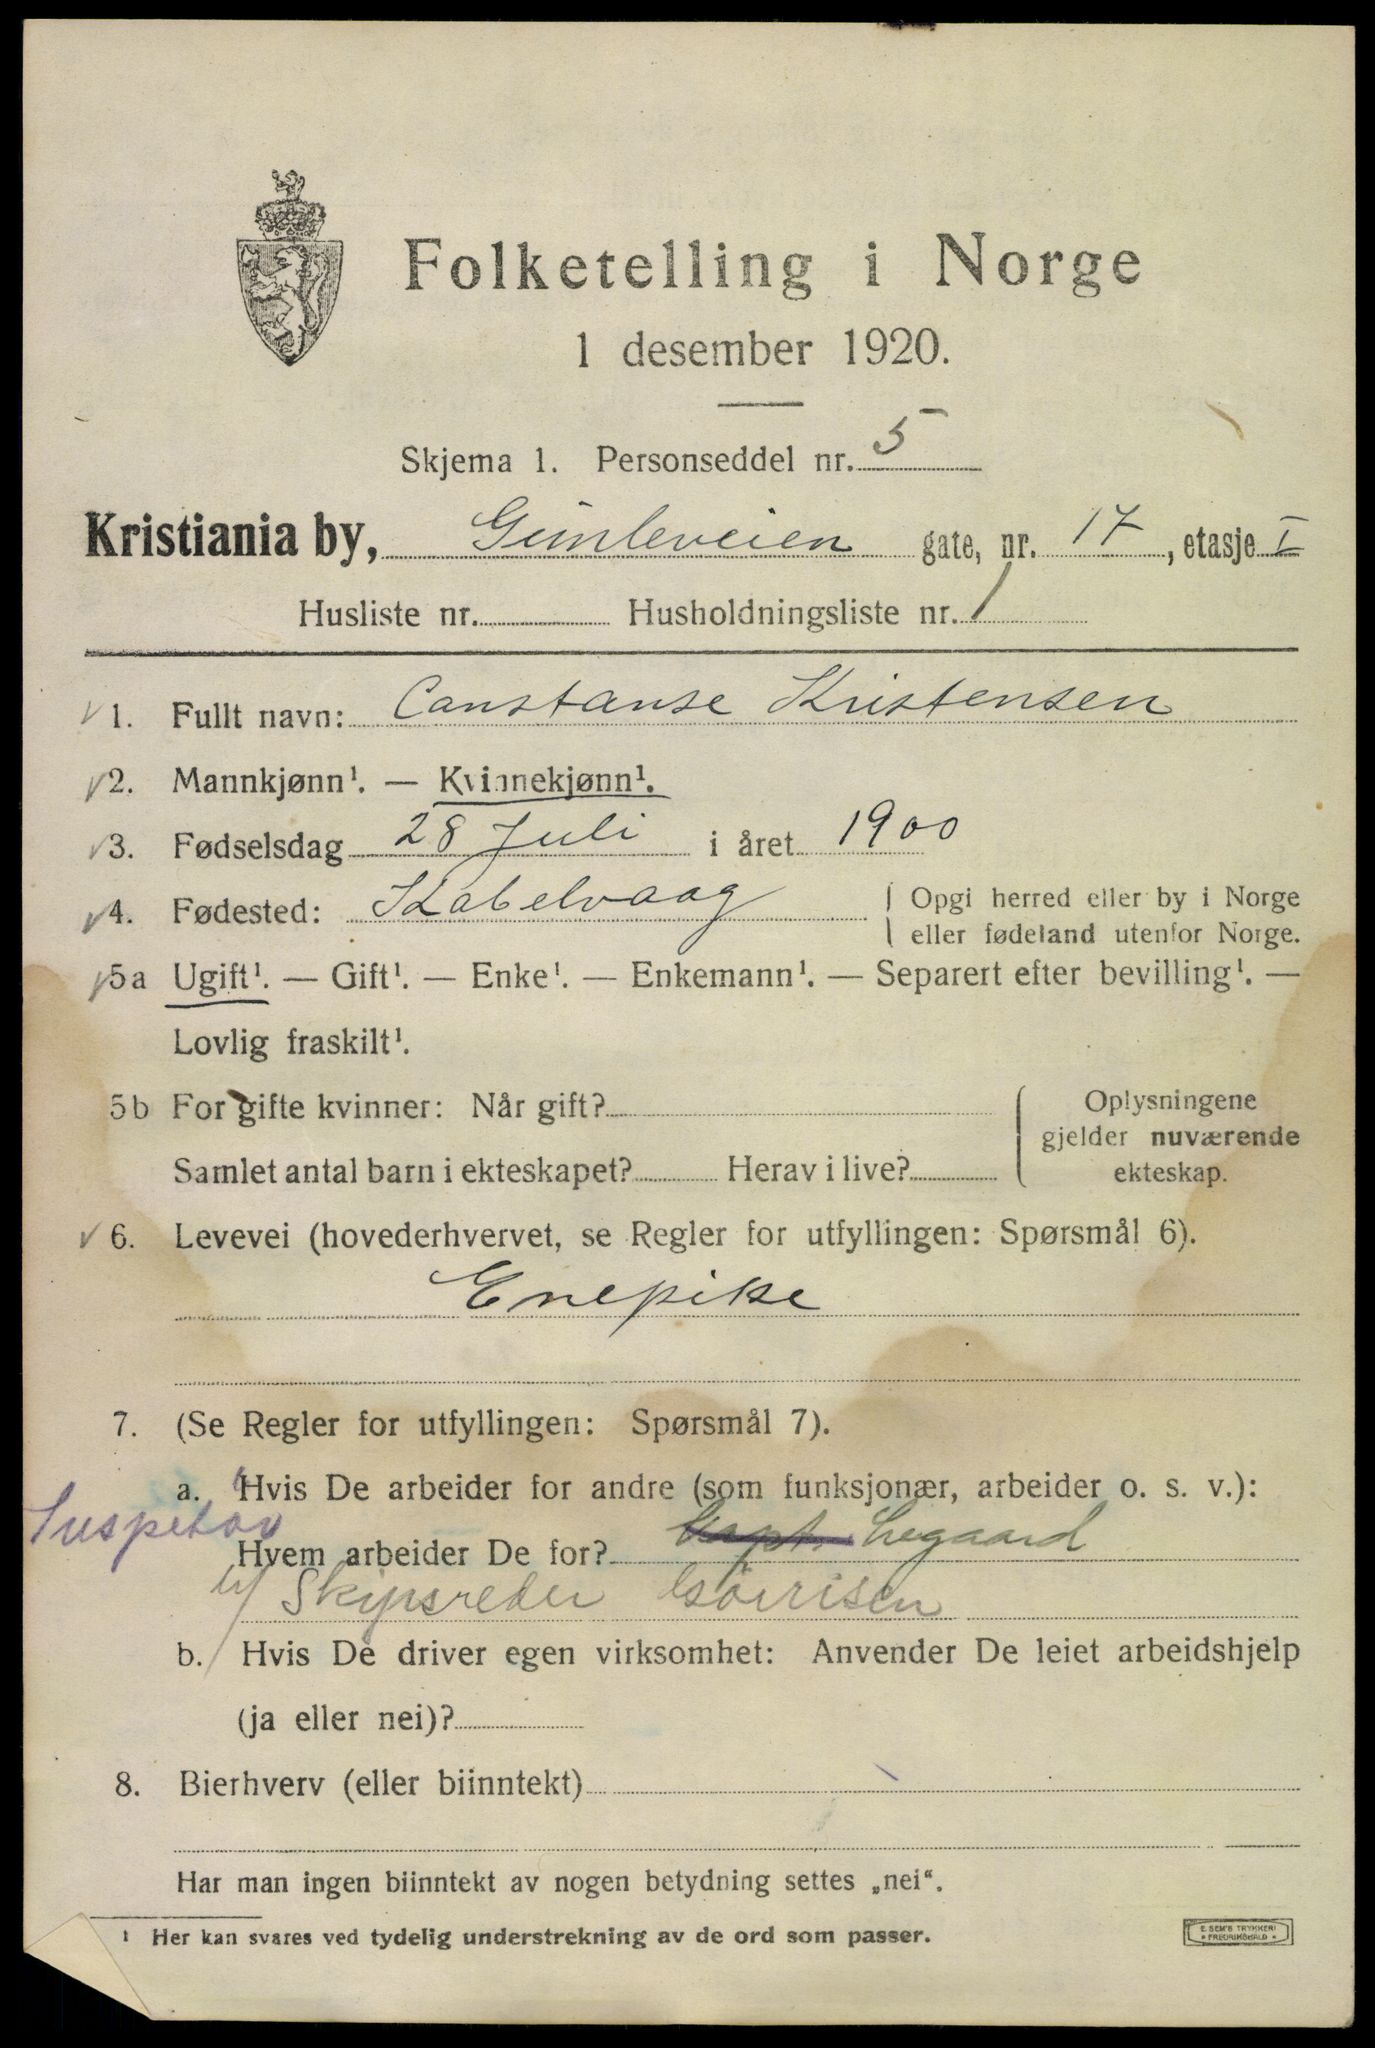 Folketelling i Norge
1 desember 1920.
Skjema 1. Personseddel nr. 5
Kristiania by, Gimleveien gate, nr. 17, etasje I
Husliste nr. Husholdningsliste nr. 1
1. Fullt navn: Constanse Kristensen
2. Mannkjønn¹. — Kvinnekjønn¹.
3. Fødselsdag 28 Juli i året 1900
4. Fødested: Kabelvaag Opgi herred eller by i Norge
eller fødeland utenfor Norge.
5a Ugift¹. — Gift¹. — Enke¹. — Enkemann¹. — Separert efter bevilling¹. —
Lovlig fraskilt¹.
5b For gifte kvinner: Når gift?
Samlet antal barn i ekteskapet? Herav i live?
Oplysningene
gjelder nuværende
ekteskap.
6. Levevei (hovederhvervet, se Regler for utfyllingen: Spørsmål 6).
Enepike
7. (Se Regler for utfyllingen: Spørsmål 7).
a. Hvis De arbeider for andre (som funksjonær, arbeider o. s. v.):
Hvem arbeider De for? Kapt. Legaard
v/ Skipsreder Gørrisen
b. Hvis De driver egen virksomhet: Anvender De leiet arbeidshjelp
(ja eller nei)?
8. Bierhverv (eller biinntekt)
Har man ingen biinntekt av nogen betydning settes „nei“.
¹ Her kan svares ved tydelig understrekning av de ord som passer.
E. SEM'S TRYKKERI
* FREDRIKSHALD *